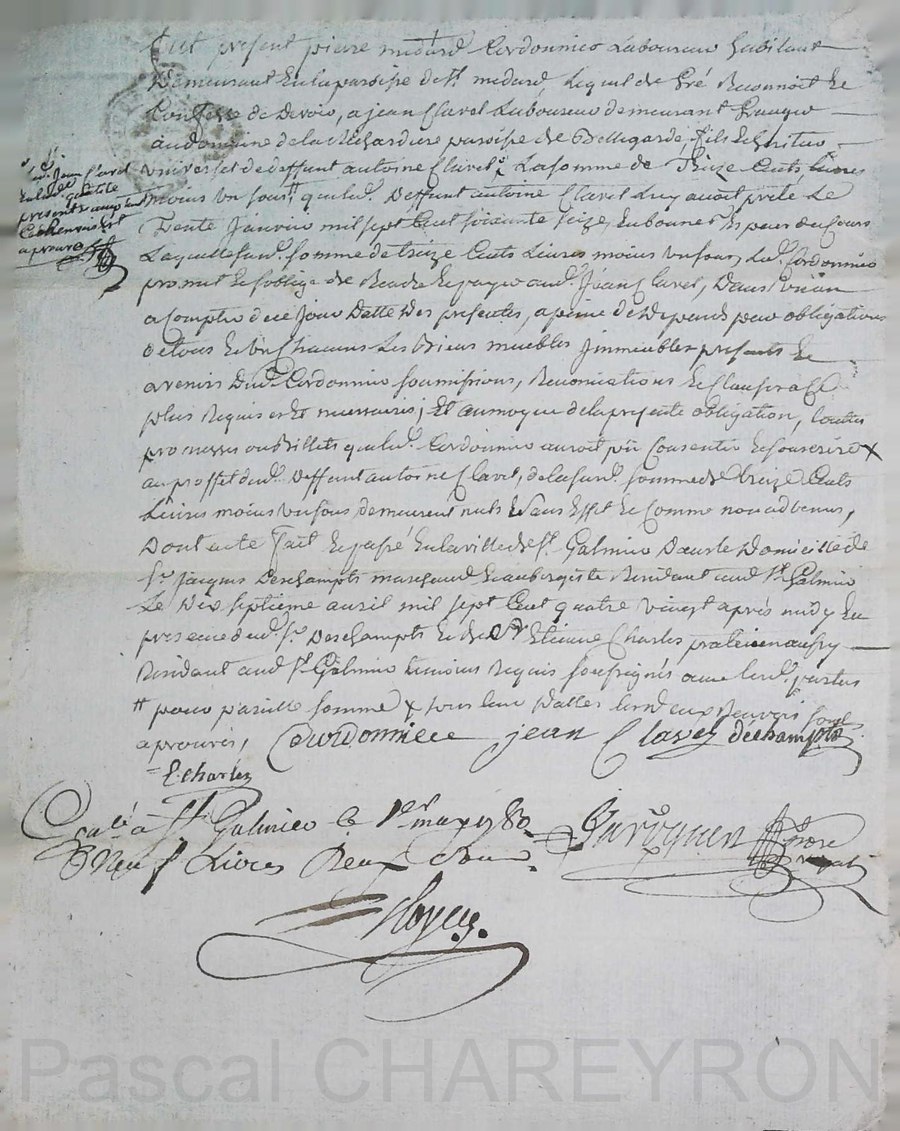 fut present pierre medard Cordonnier Laboureur habitant
Demeurant En la paroisse de St medard Lequel de Gré Reconnoit Et
Confesse de Devoir, a jean Clavel Laboureur demeurant Granger
au domaine de la paroisse de Bellegarde fils Et heritier
universel de deffunt antoine Clavel La somme de Treize Cents livres
moins un sou quelud. Deffunt antoine Clavel Luy avoit prété Le
Trente Janvier mil sept Cent soixante seize, En bonnes Espèces du Cours
Laquelle sud. somme de treize Cents Livres moins un sou, Led. Cordonnier
promet Et s'oblige de Rendre Et payer aud. Jean Clavel, Dans un an
a Compter de ce Jour Datte Des presentes, a peine de Depends pour obligations
de tous Et un Chacuns Les Biens meubles Jmmeubles presents Et
avenirs Dud. Cordonnier soumissions, Renonciations Et Clauses a ce
plus Requises Et necessaires; Et au moyen de la presente obligation, toutes
promesses ou Billets quelud. Cordonnier auroit pû Consentir Et souscrire x
au proffet dud. Deffunt antoine Clavel, de la sud. somme de treize Cents
Livres moins un sou, demeurent nuls Et sans Effet Et Comme non advenus,
Dont acte fait Et passé En la ville de St. Galmier Dans le Domicille de
Sr. Jacques Deschampts marchand Et aubergiste Residant aud St. Galmier
Le Dix septieme avril mil sept Cent quatre vingt après midy En
presence dud. Sr. Deschampts Et de Sr Etienne Charles praticien
Residant aud St. Galmier temoins Requis soussignés avec lesd. parties
# pour pareille somme x sous leur Dattes les deux Renvois sont
aprouvés,
Courdonniere jean Clavel déchampts
E. charles
jean Clavel
En lad. qualité
present Et acceptant
Ce Renvoy Est
aprouvé
Conlé à St. Galmier le 1er may 1780
R Neuf Livres Deux